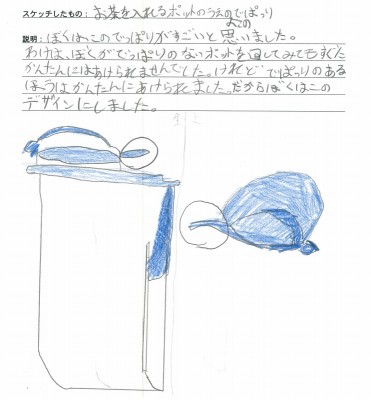 スケッチしたもの：お茶を入れるポットのうえのよこのでっぱり
説明：ぼくは、このでっぱりがすごいと思いました。
わけは、ぼくがでっぱりのないポットを通してみてもすぐに
かんたんにはあけられませんでした。けれどでっぱりのある
ほうはかんたんにあけられました。だからぼくはこの
デザインにしました。